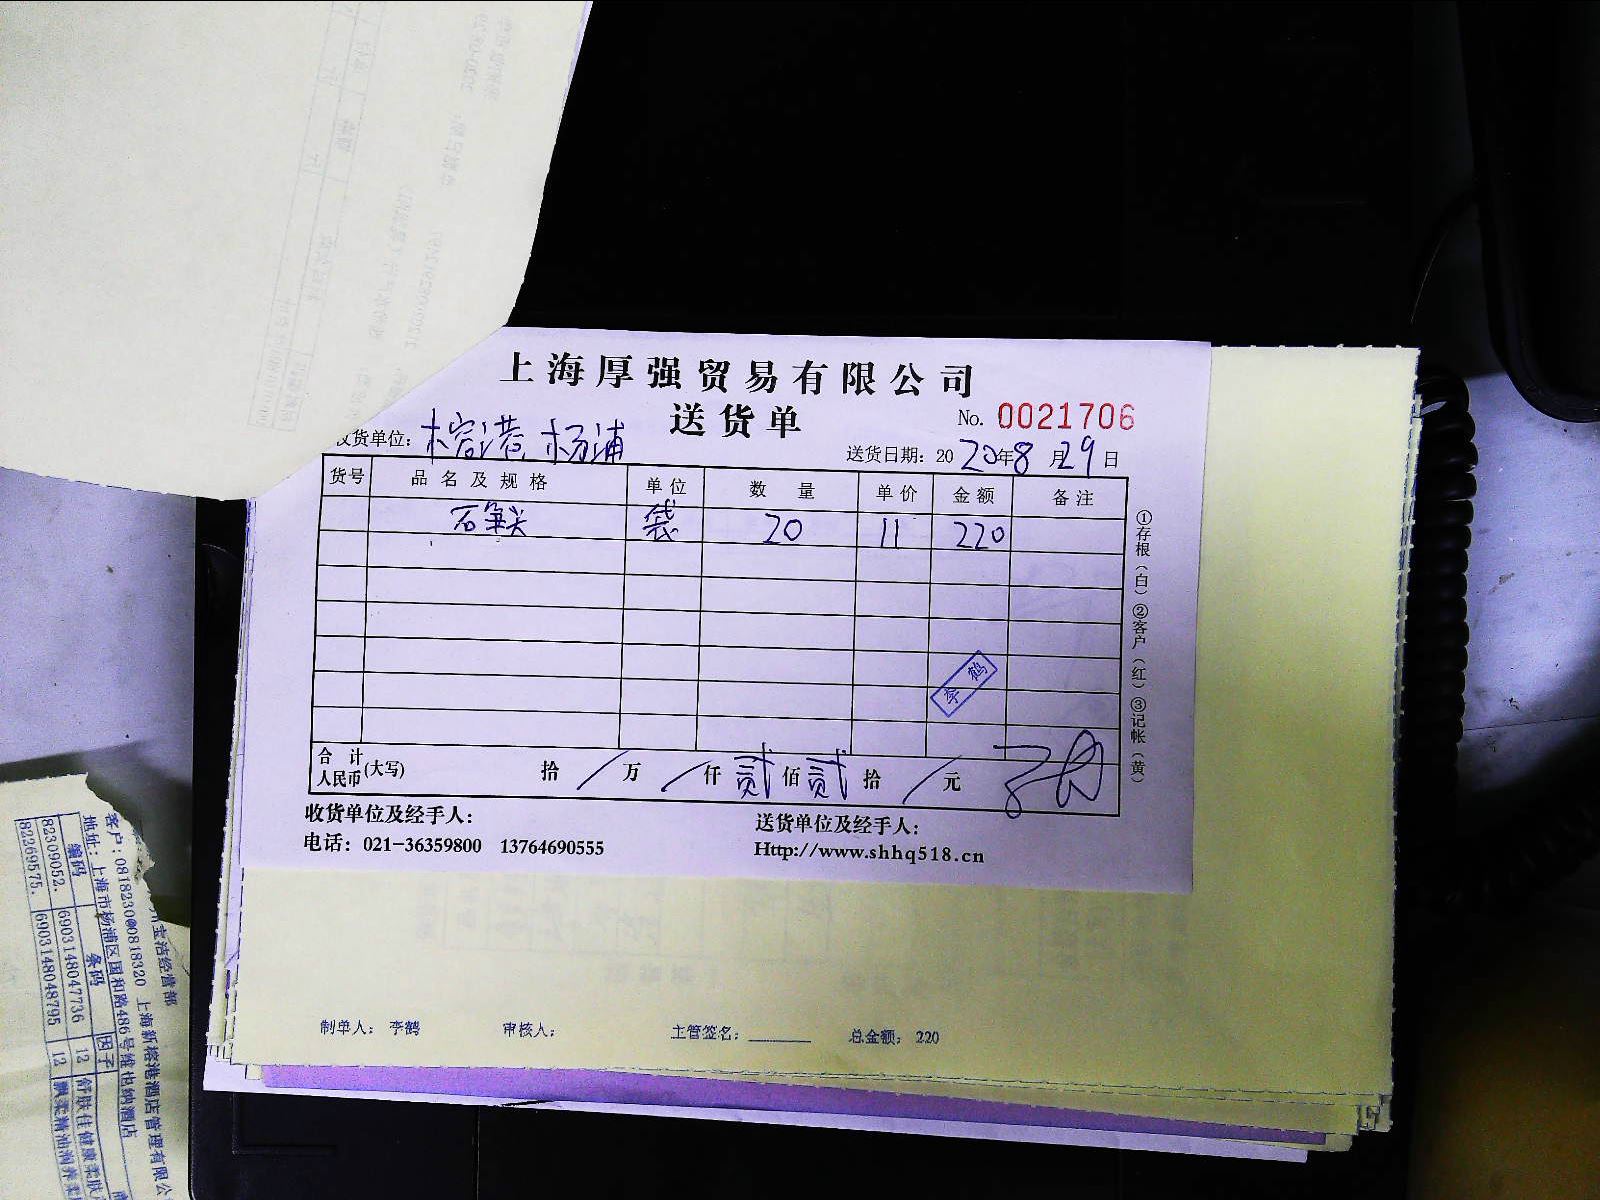 上海厚强贸易有限公司
送货单
No. 0021706
收货单位: 榕港 杨浦
送货日期: 2020年8月29日
货号 品名及规格 单位 数量 单价 金额 备注
袋 20 11 220
李鹤
合计人民币(大写) 拾 / 万 / 仟 贰 佰 贰 拾 / 元
收货单位及经手人:
送货单位及经手人:
电话: 021-36359800 13764690555
Http://www.shhq518.cn
①存根(白)②客户(红)③记帐(黄)
制单人: 李鹤 审核人: 主管签名: 总金额: 220
宝洁经营部
客户: 0818230@0818320 上海新榕港酒店管理有限公
地址: 上海市杨浦区国和路486号维也纳酒店
编码 条码 因子
82309052. 6903148047736 12 舒肤佳健康柔肤
82269575. 6903148048795 12 飘柔精油润养柔